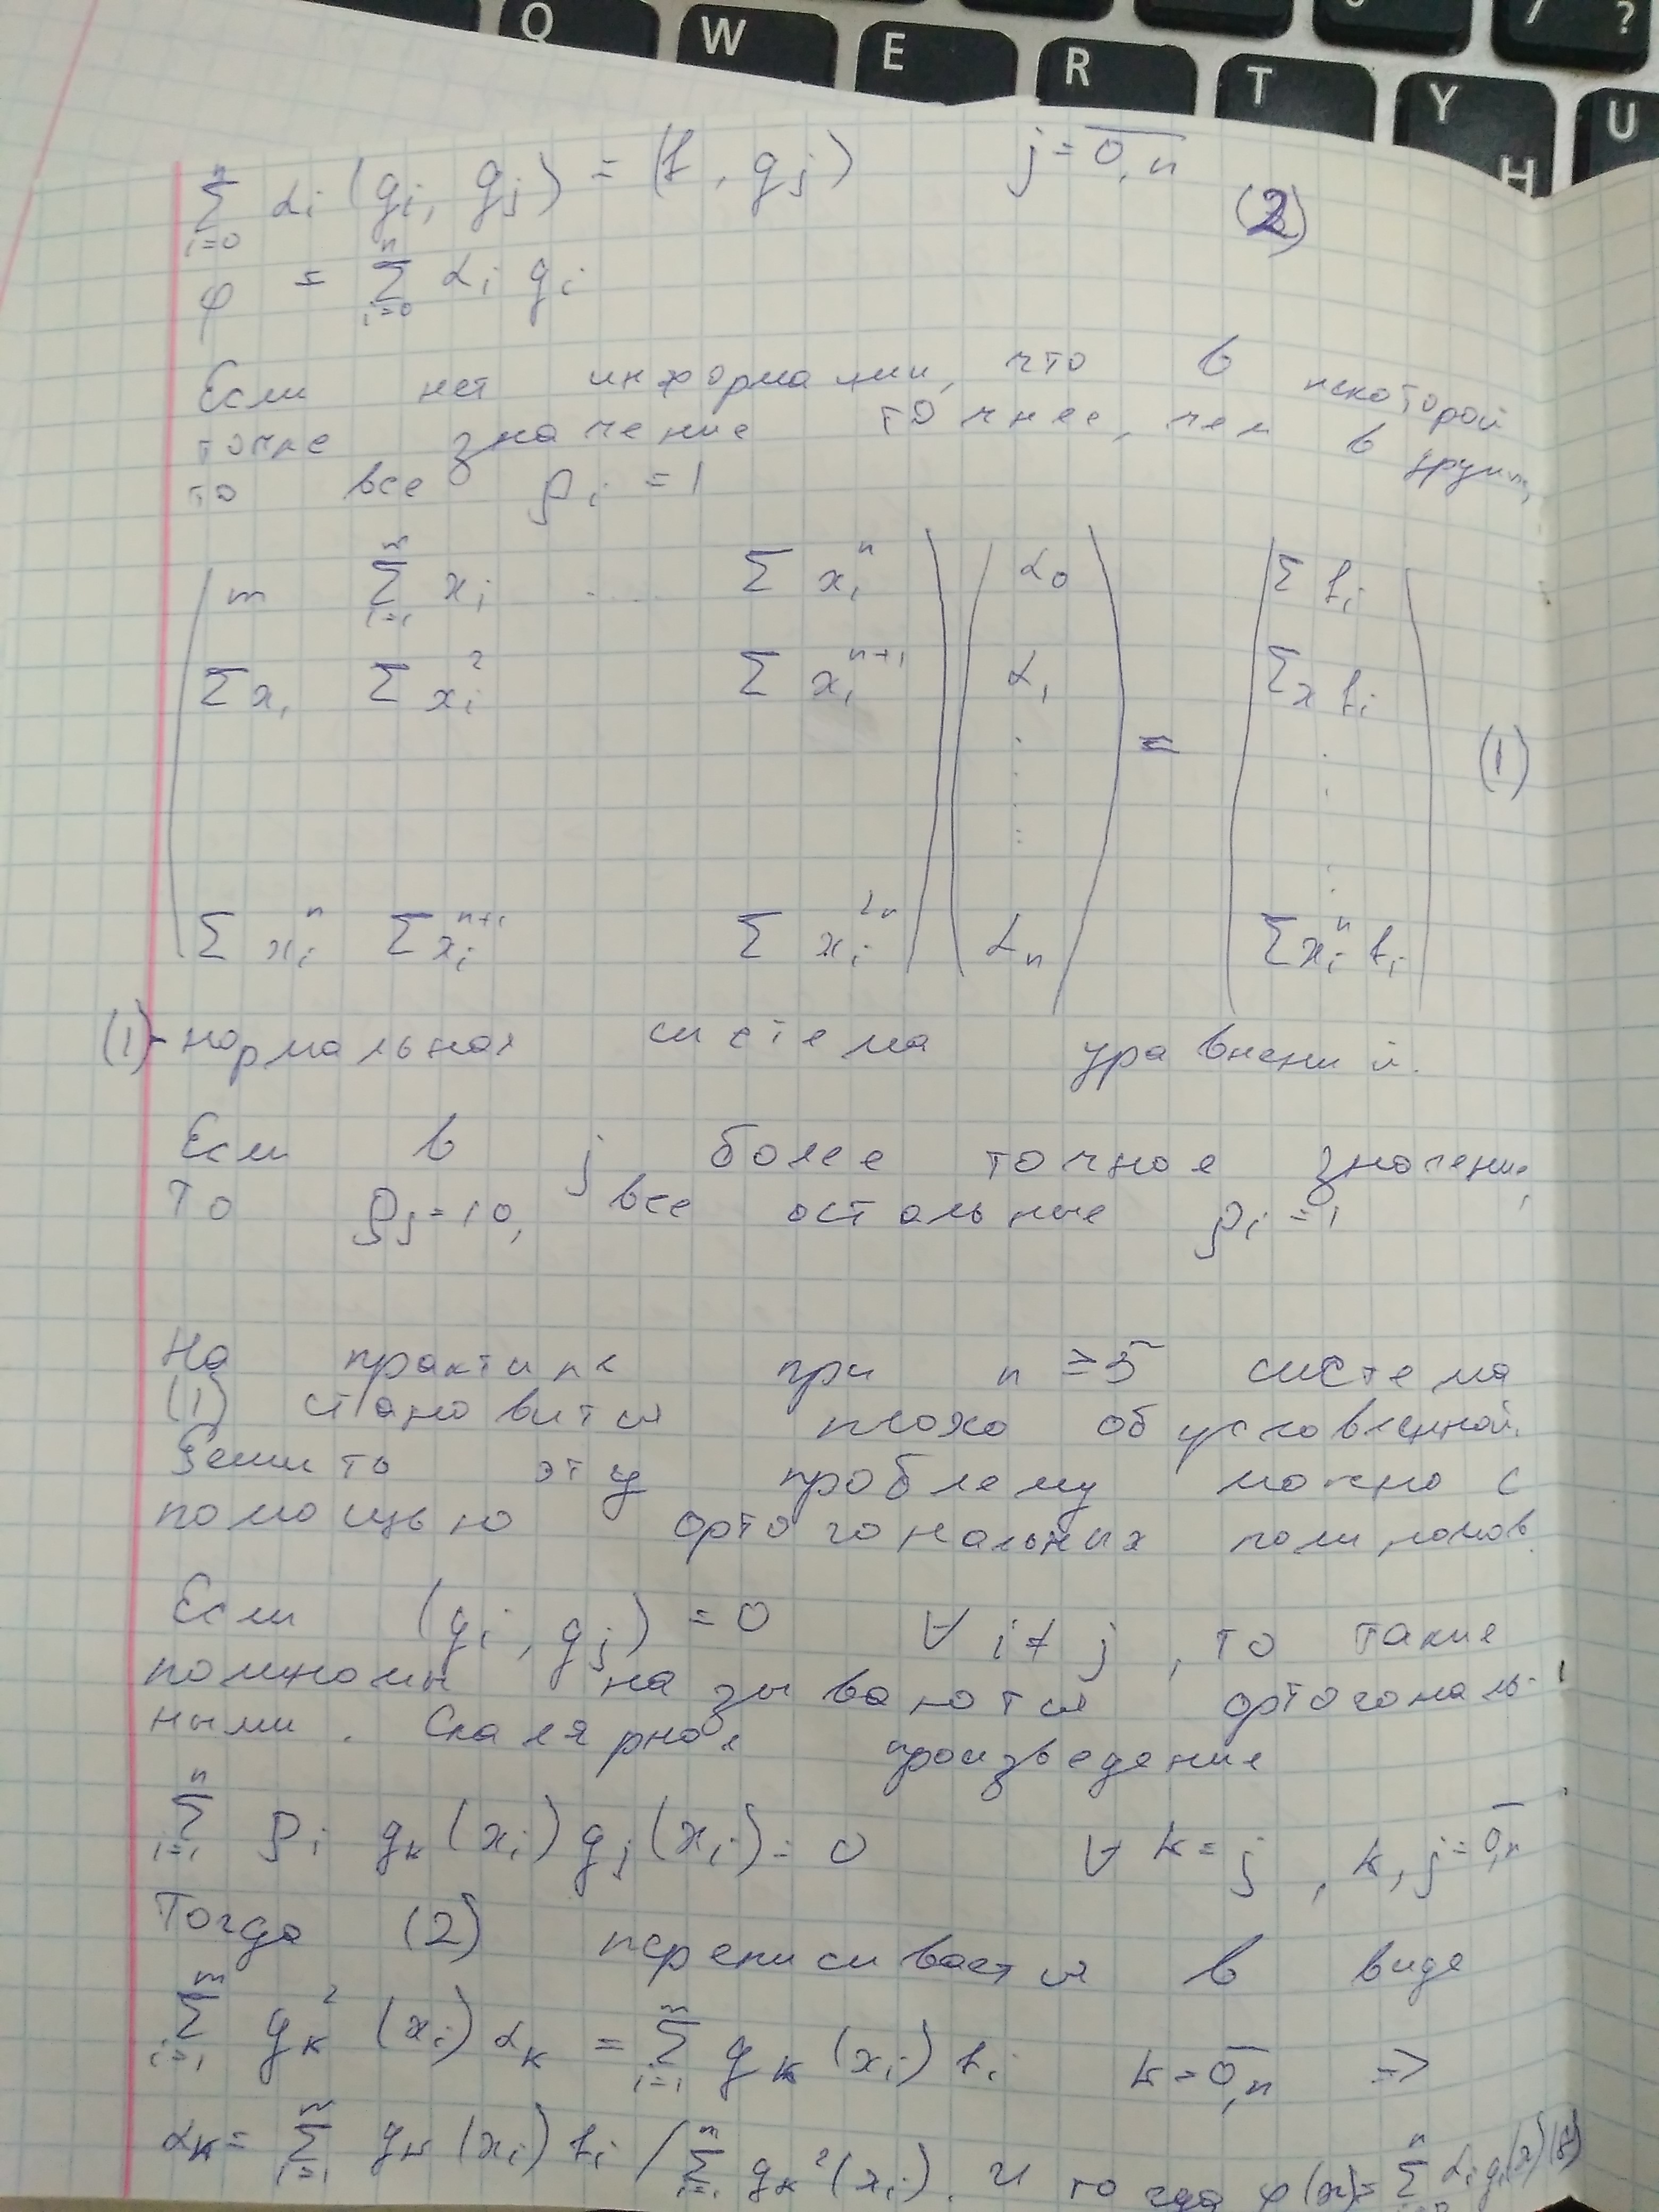 Q W E R T Y U H ?
n∑i=0 αi (gi, gj) = (f, gj) j = 0,n
(2)
φ = n∑i=0 αi gi
Если нет информации, что в некоторой
точке значение точнее, чем в других,
то все ρi = 1
m m∑i=1 xi .... ∑ xi^n α0 ∑ fi
∑ xi ∑ xi^2 ∑ xi^(n+1) α1 ∑ x fi
= (1)
∑ xi^n ∑ xi^(n+1) ∑ xi^(2n) αn ∑ xi^n fi
(1) - нормальная система уравнений.
Если в j более точное значение,
то ρj = 10, все остальные ρi = 1
На практике при n ≥ 5 система
(1) становится плохо обусловленной.
Решить эту проблему можно с
помощью ортогональных полиномов.
Если (gi, gj) = 0 ∀ i ≠ j, то такие
полиномы называются ортогональ-
ными. Скалярное произведение
n∑i=1 ρi gk(xi) gj(xi) = 0 ∀ k = j, k, j = 0,n
Тогда (2) переписывается в виде
m∑i=1 gk^2 (xi) αk = m∑i=1 gk (xi) fi k = 0,n =>
αk = m∑i=1 gk (xi) fi / m∑i=1 gk^2 (xi). И тогда φ(x) = n∑i=0 αi gi(x)